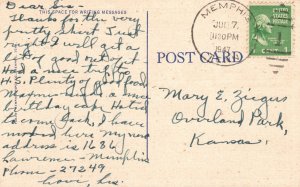 Dear Sis -
THIS SPACE FOR WRITING MESSAGES
Thanks for the very
pretty shirt. Just
right & will get a
lot of good out of it
Had a nice trip to
H.S. Plenty of good food
Maxine & a nice
birthday cake. Hated
to come back, I have
moved here my new
address is 1686
Lawrence - Memphis
Phone - 27249
Love, Sis.
MEMPHIS
JUL 7
PM
1947
UNITED STATES POSTAGE
1
POST CARD
Mary E. Ziegus
Overland Park,
Kansas.